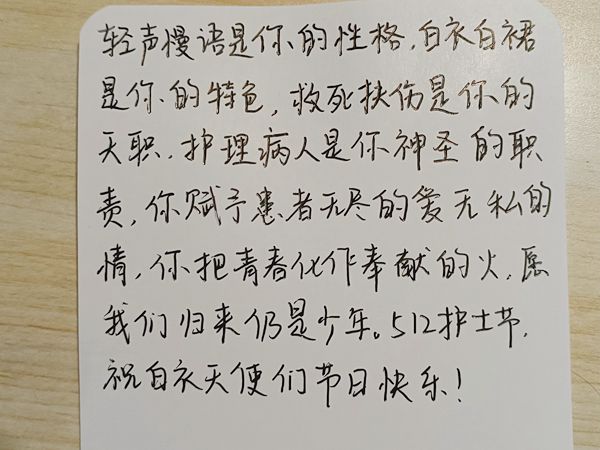 轻声慢语是你的性格,白衣白裙
是你的特色,救死扶伤是你的
天职,护理病人是你神圣的职
责,你赋予患者无尽的爱无私的
情,你把青春化作奉献的火,愿
我们归来仍是少年。512护士节,
祝白衣天使们节日快乐!